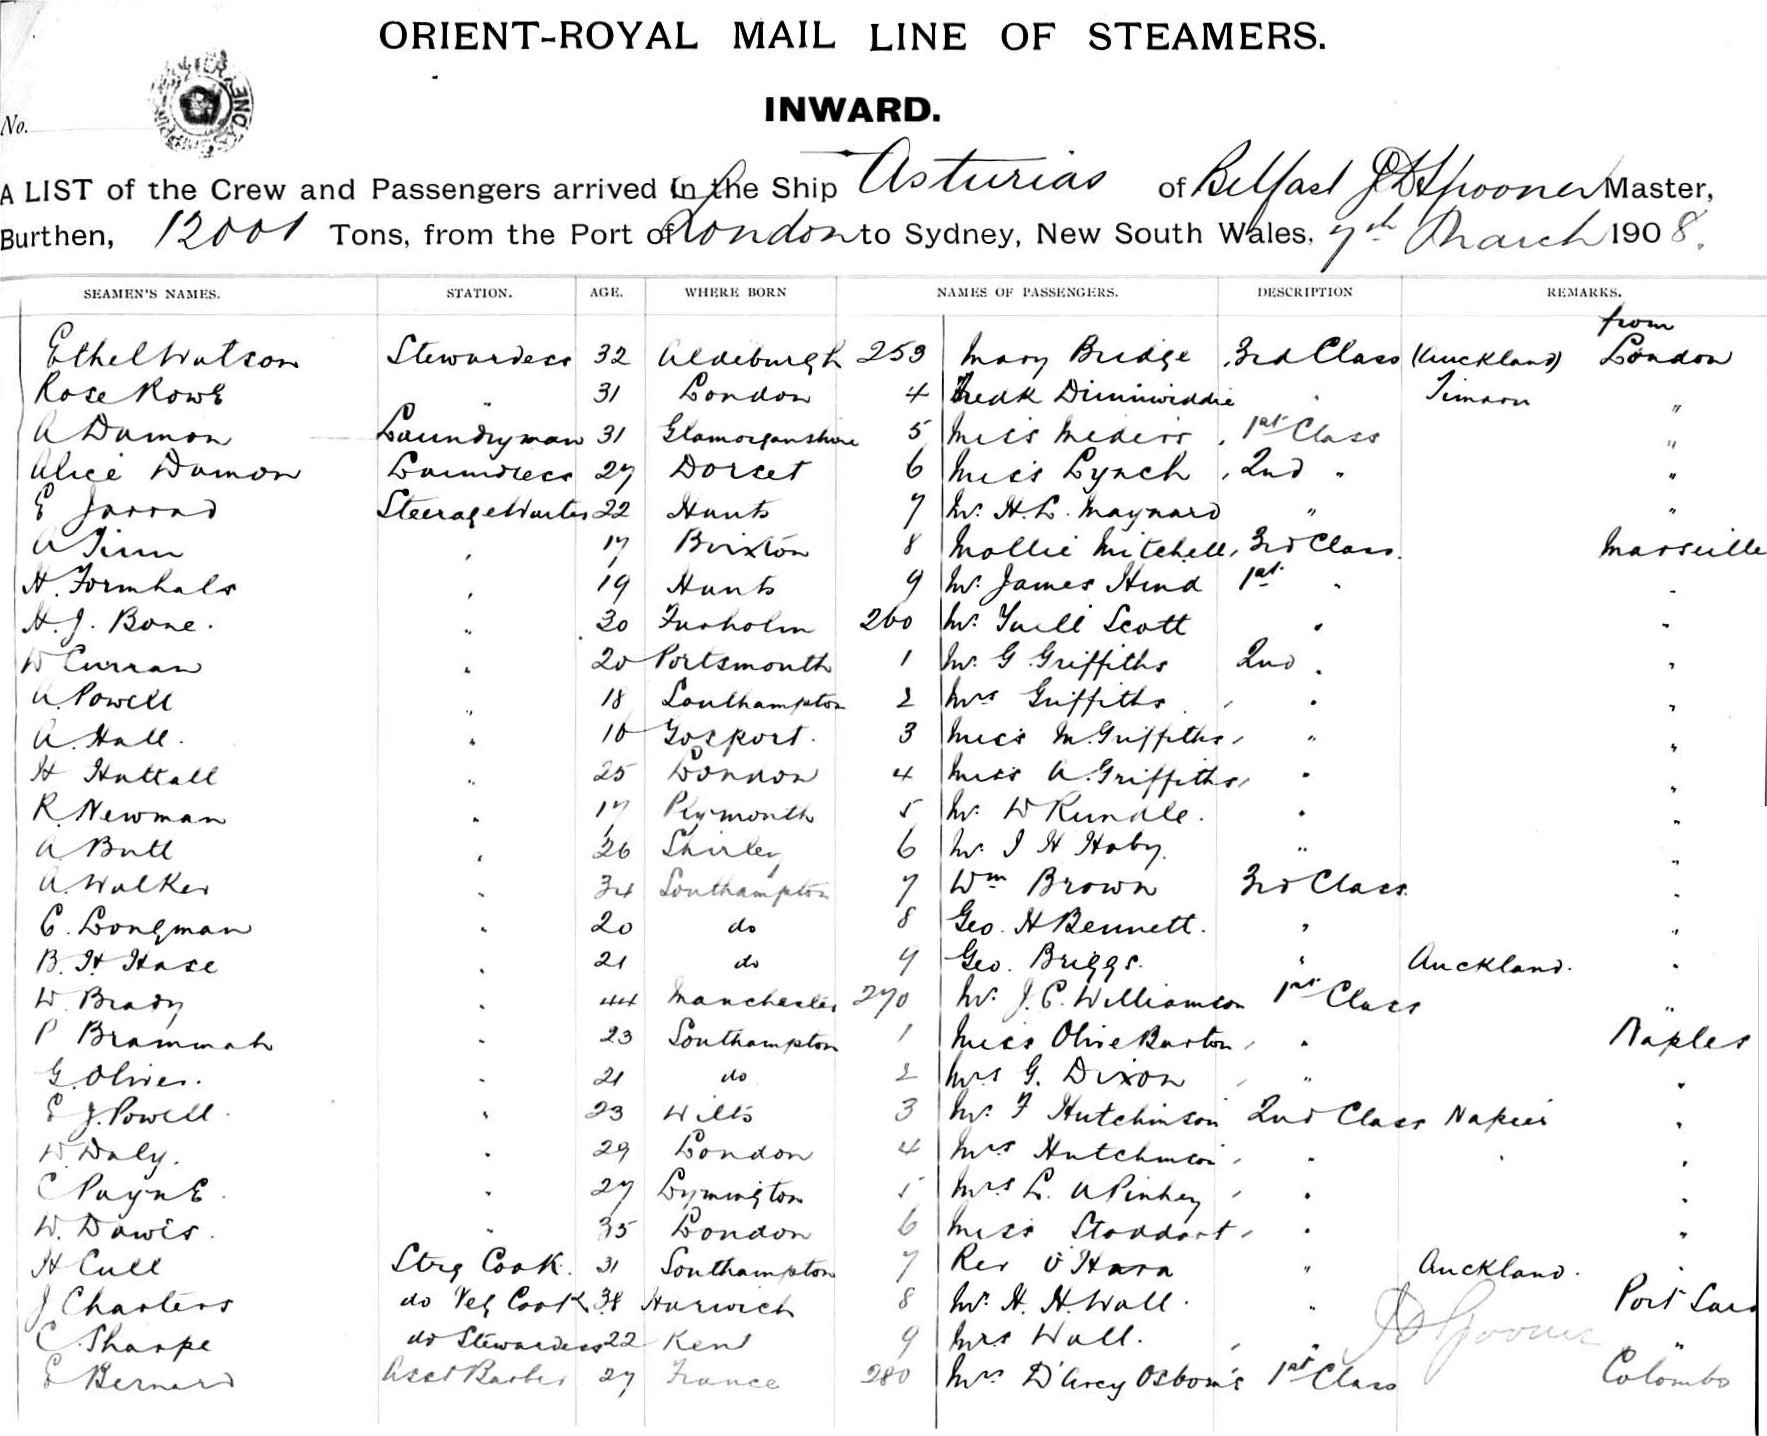 ORIENT-ROYAL MAIL LINE OF STEAMERS.
INWARD.
No.
A LIST of the Crew and Passengers arrived in the Ship Asturias of Belfast J D Spooner Master,
Burthen, 12001 Tons, from the Port of London to Sydney, New South Wales, 7th March 1908.
SEAMEN'S NAMES. STATION. AGE. WHERE BORN NAMES OF PASSENGERS. DESCRIPTION REMARKS.
from
Ethel Watson Stewardess 32 Aldeburgh 253 Mary Bridge 3rd Class (Auckland) London
Rose Rowe " 31 London 4 Fredk Dinniwiddie " Timaru "
A Damon Laundryman 31 Glamorganshire 5 Miss 1st Class "
Alice Damon Laundress 27 Dorset 6 Miss Lynch 2nd " "
E Jarrad Steerage Waiter 22 Hants 7 Mr. H. L. Maynard " "
A " 17 Brixton 8 Mollie Mitchell, 3rd Class. Marseille
H. Formhals " 19 Hants 9 Mr. James Hind 1st " "
H. J. Bone. " 30 260 Mr. Yuill Scott " "
W Curran " 20 Portsmouth 1 Mr. G Griffiths 2nd " "
A. Powell " 18 Southampton 2 Mrs Griffiths " "
A. Hall. " 18 Gosport. 3 Miss M. Griffiths " "
H Huttall " 25 London 4 Miss A. Griffiths " "
R. Newman " 17 Plymouth 5 Mr. W Rundle. " "
A Butt " 26 Shirley 6 Mr. I H Hoby. " "
A. Walker " 34 Southampton 7 Wm Brown 3rd Class. "
C. Longman " 20 do 8 Geo. H Bennett. " "
B. H Hase " 21 do 9 Geo. Briggs. " Auckland. "
W Brady " 44 Manchester 270 Mr. J. C. Williamson 1st Class "
P Brammah " 23 Southampton 1 Miss Olive Barton " Naples
G. Oliver. " 21 do 2 Mrs G. Dixon " "
E J. Powell " 23 Wilts 3 Mr. F Hutchinson 2nd Class Napier "
W. Daly. " 29 London 4 Mrs Hutchinson " " "
C Payne " 27 Lymington 5 Mrs L. A Pinhey " "
W. Davis. " 35 London 6 Miss Stoddart " "
H Cull Strg Cook. 31 Southampton 7 Rev O'Hara " Auckland. "
J Charters do Veg Cook 38 Harwich 8 Mr. H. H. Wall. " Port Said
C. Sharpe do Stewardess 22 Kent 9 Mrs Wall. " J D Spooner "
E Bernard Asst Barber 27 France 280 Mrs D'Arcy Osborne 1st Class Colombo